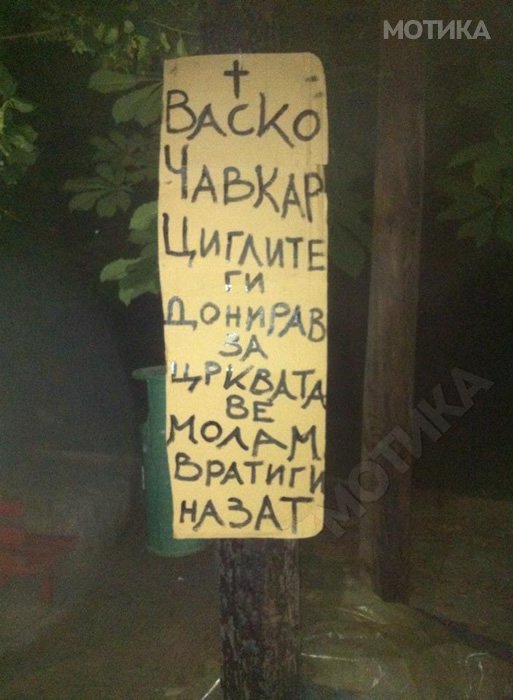 МОТИКА
†
ВАСКО
ЧАВКАР
ЦИГЛИТЕ
ГИ
ДОНИРАВ
ЗА
ЦРКВАТА
ВЕ
МОЛАМ
ВРАТИГИ
НАЗАТ
МОТИКА